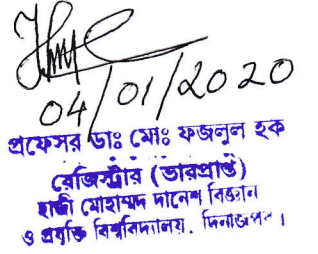 04/01/2020
প্রফেসর ডাঃ মোঃ ফজলুল হক
রেজিস্ট্রার (ভারপ্রাপ্ত)
হাজী মোহাম্মদ দানেশ বিজ্ঞান
ও প্রযুক্তি বিশ্ববিদ্যালয়, দিনাজপুর।